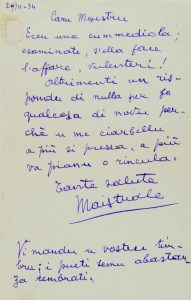 29/11-34
Caru Maestru
Eccu una cummediola;
esaminate, s'ella face
l'affare, vulenteri!
Altrimenti un ris-
pondu di nulla per fà
qualcosa di noivu per-
chè u me ciarbellu
a più si pressa, a più
va pianu o rincula.
Tante salute
Maistrale
Vi mandu u vostru tim-
bru; i preti semu abastan-
za timbrati.